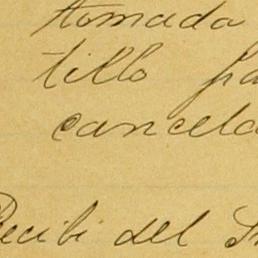 tomada
tillo pa
cancela
Recibi del Sr